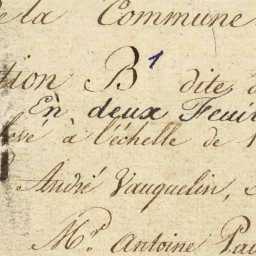 de la Commune
tion B 1 dite
En deux Feuil
levé à l'échelle de 1
André Vauquelin,
Mr. Antoine Pau